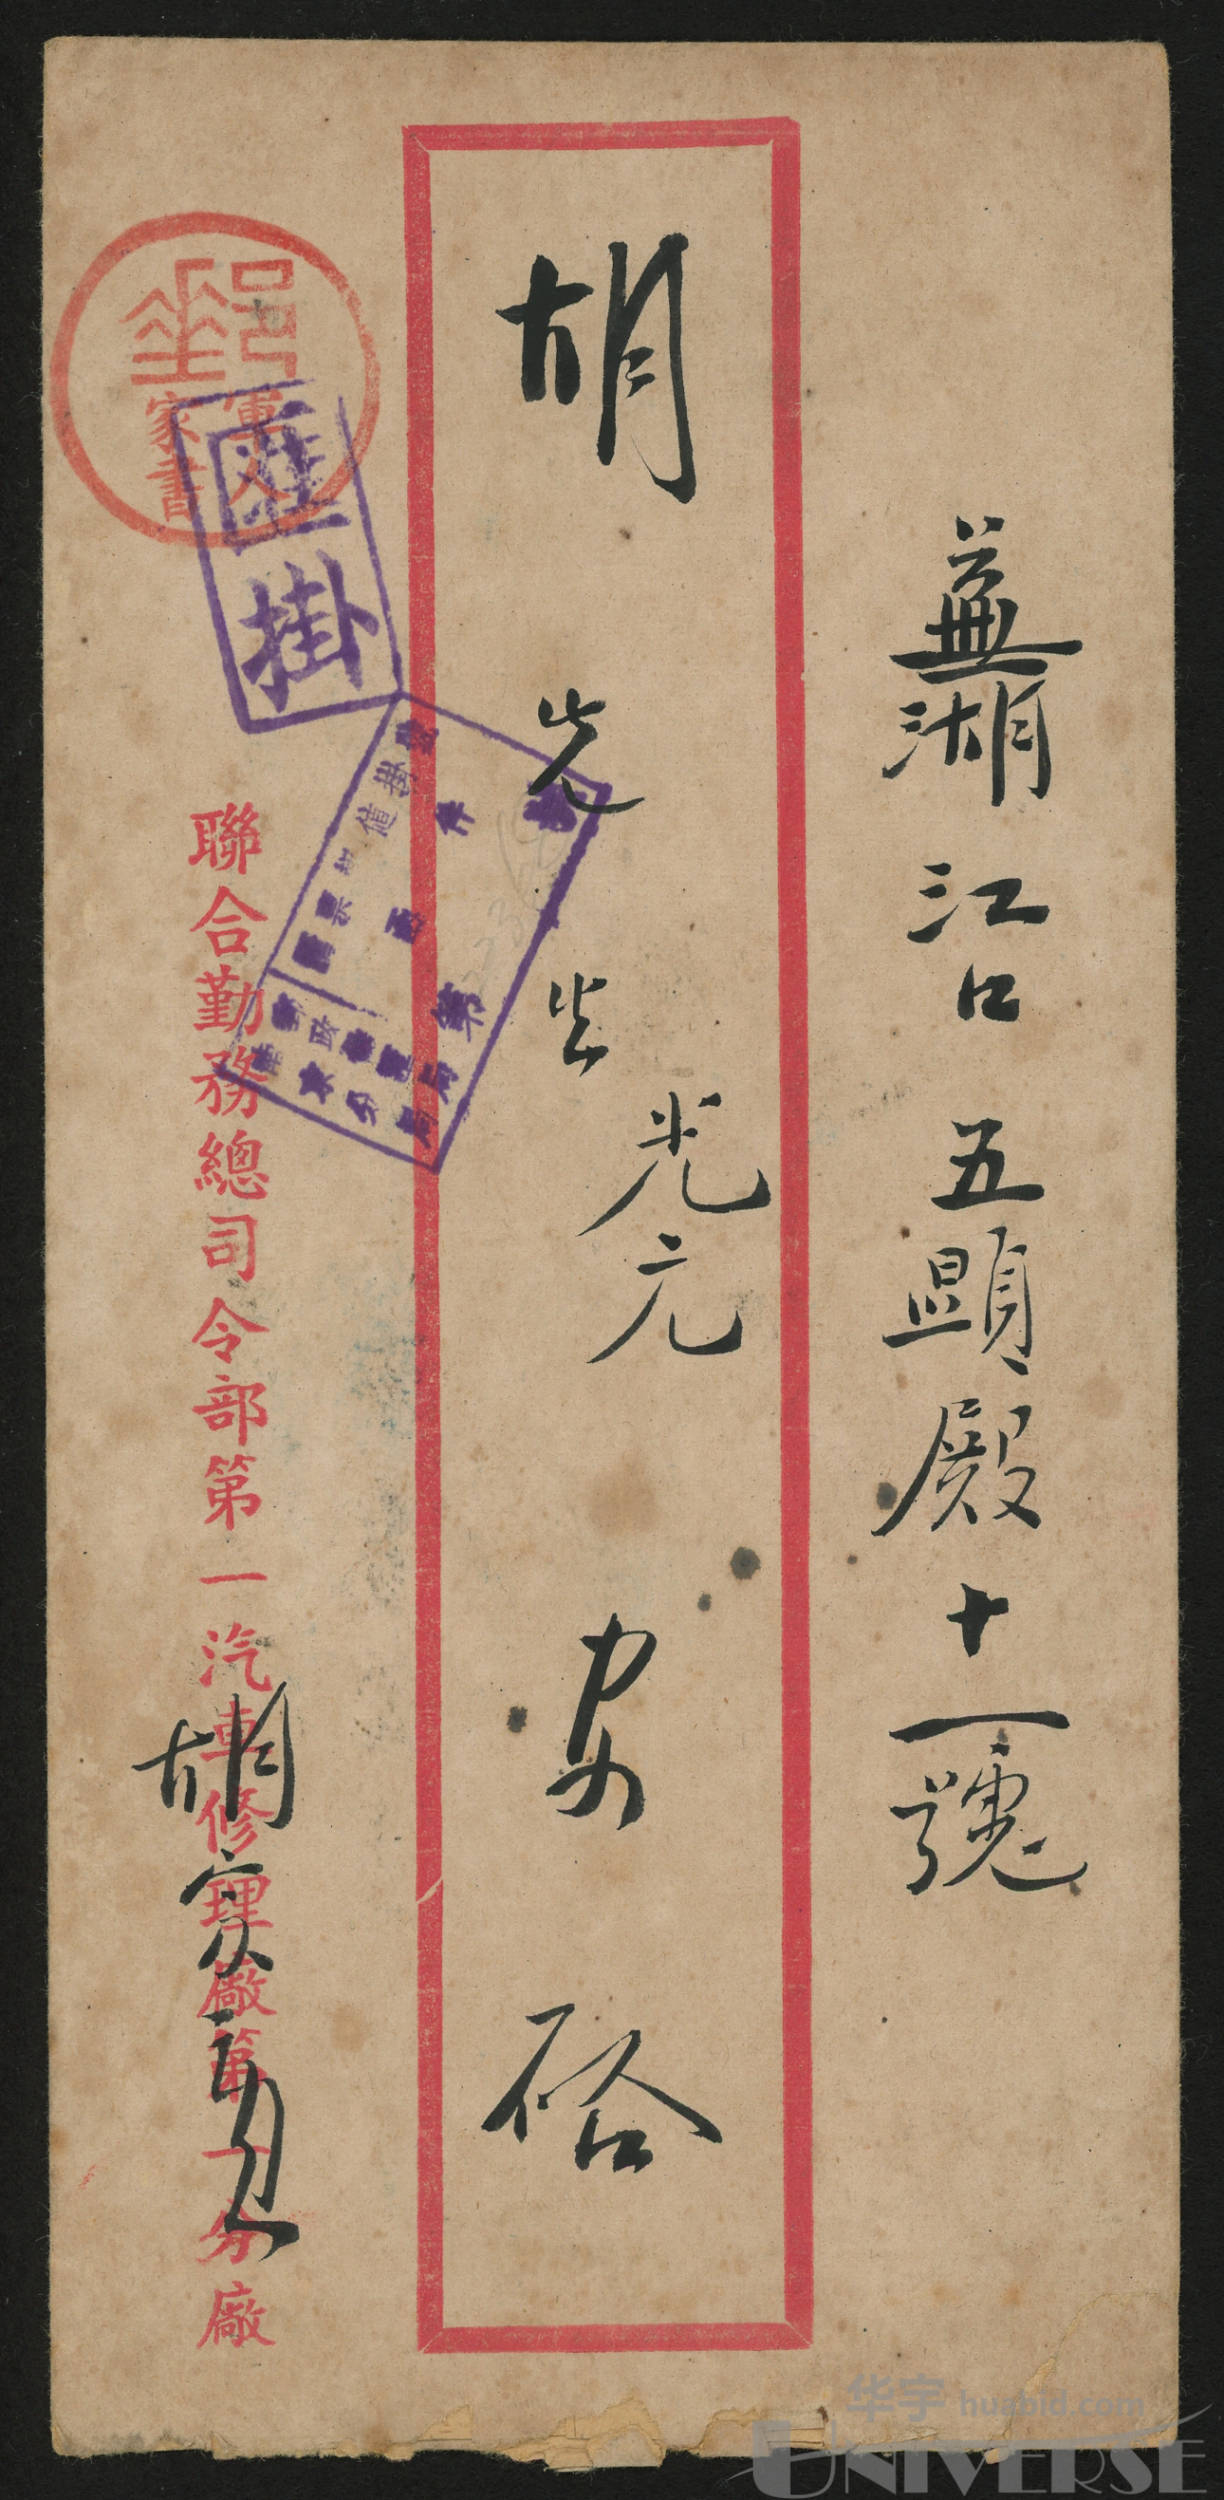 蕪湖江口五顯殿十一號
胡先生光元安啓
郵
軍人
家書
匯
掛
聯合勤務總司令部第一汽車修理廠第一分廠
胡
华宇 huabid.com
UNIVERSE